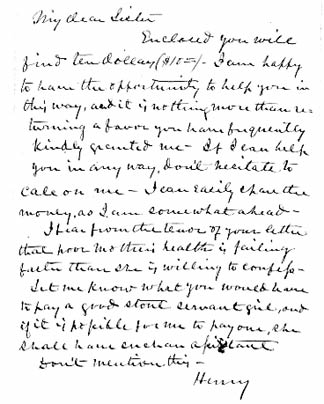 My dear Sister
Enclosed you will
find ten dollars ($10 00/)- I am happy
to have the opportunity to help you in
this way, and it is nothing more than re-
turning a favor you have frequently
kindly granted me - If I can help
you in any way, don't hesitate to
call on me - I can easily spare the
money, as I am somewhat ahead -
I fear from the tenor of your letter
that poor mother's health is failing
faster than she is willing to confess -
Let me know what you would have
to pay a good stout servant girl, and
if it is possible for me to pay one, she
shall have such an assistant
Don't mention this -
Henry